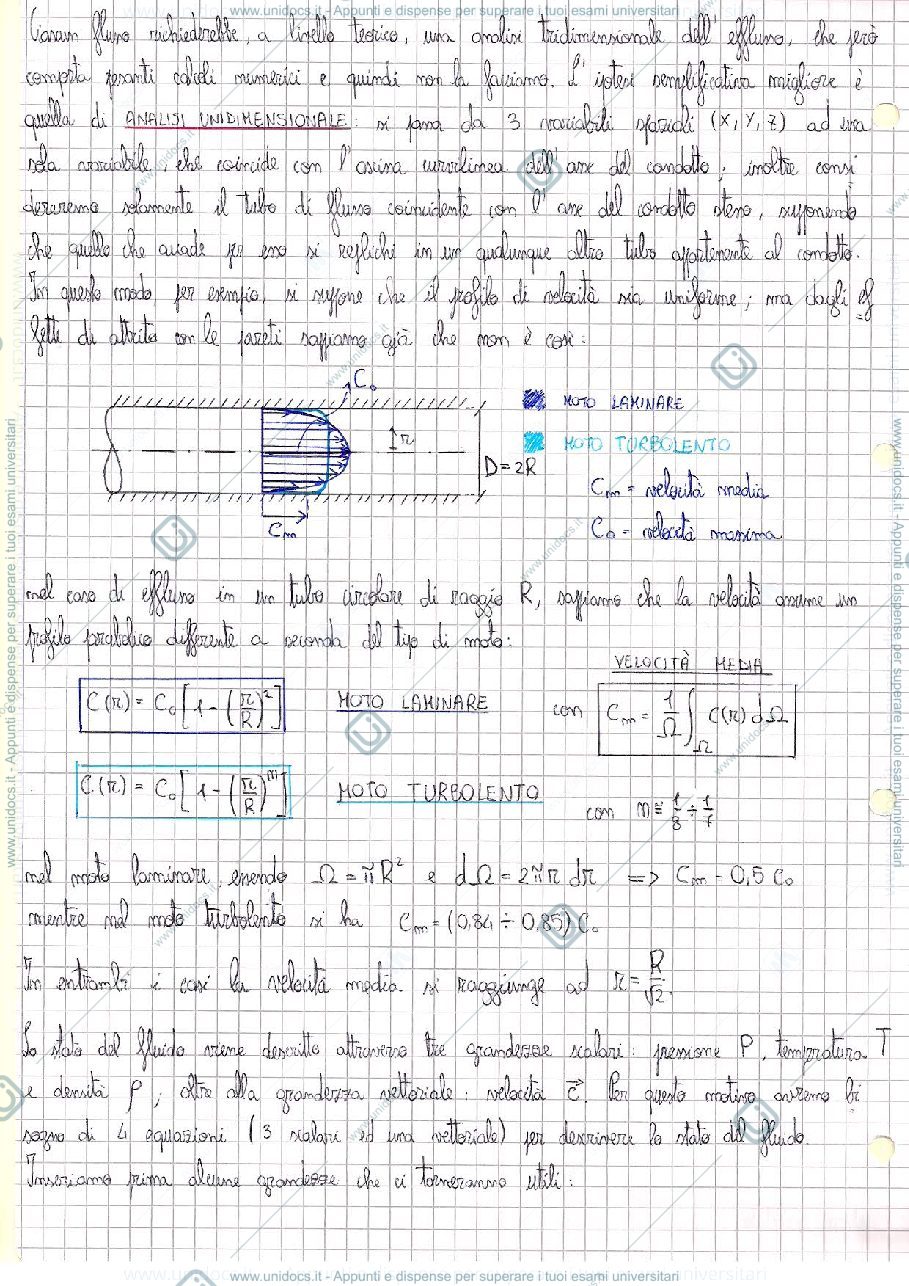 www.unidocs.it - Appunti e dispense per superare i tuoi esami universitari
Ciascun flusso richiederebbe, a livello teorico, una analisi tridimensionale dell' efflusso, che però
comporta pesanti calcoli numerici e quindi non la facciamo. L' ipotesi semplificativa migliore è
quella di ANALISI UNIDIMENSIONALE: si passa da 3 variabili spaziali (X, Y, Z) ad una
sola variabile, che coincide con l' ascissa curvilinea dell' asse del condotto; inoltre consi
dereremo solamente il tubo di flusso coincidente con l' asse del condotto stesso, supponendo
che quello che accade per esso si replichi in un qualunque altro tubo appartenente al condotto.
In questo modo per esempio, si suppone che il profilo di velocità sia uniforme; ma dagli ef
fetti di attrito con le pareti sappiamo già che non è così:
C₀
MOTO LAMINARE
r
MOTO TURBOLENTO
D=2R
Cm = velocità media
Cm
C₀ = velocità massima
nel caso di efflusso in un tubo circolare di raggio R, sappiamo che la velocità assume un
profilo parabolico differente a seconda del tipo di moto:
VELOCITÀ MEDIA
C(r) = C₀ [1 - (r/R)²] MOTO LAMINARE con Cm = 1/Ω ∫Ω C(r) dΩ
C(r) = C₀ [1 - (r/R)^m] MOTO TURBOLENTO con m ≅ 1/8 ÷ 1/7
nel moto laminare, essendo Ω = πR² e dΩ = 2πr dr => Cm = 0,5 C₀
mentre nel moto turbolento si ha Cm = (0,84 ÷ 0,85) C₀
In entrambi i casi la velocità media si raggiunge ad r = R/√2.
Lo stato del fluido viene descritto attraverso tre grandezze scalari: pressione P, temperatura T
e densità ρ; oltre alla grandezza vettoriale: velocità c⃗. Per questo motivo avremo bi
sogno di 4 equazioni (3 scalari ed una vettoriale) per descrivere lo stato del fluido.
Inseriamo prima alcune grandezze che ci torneranno utili:
www.unidocs.it - Appunti e dispense per superare i tuoi esami universitari